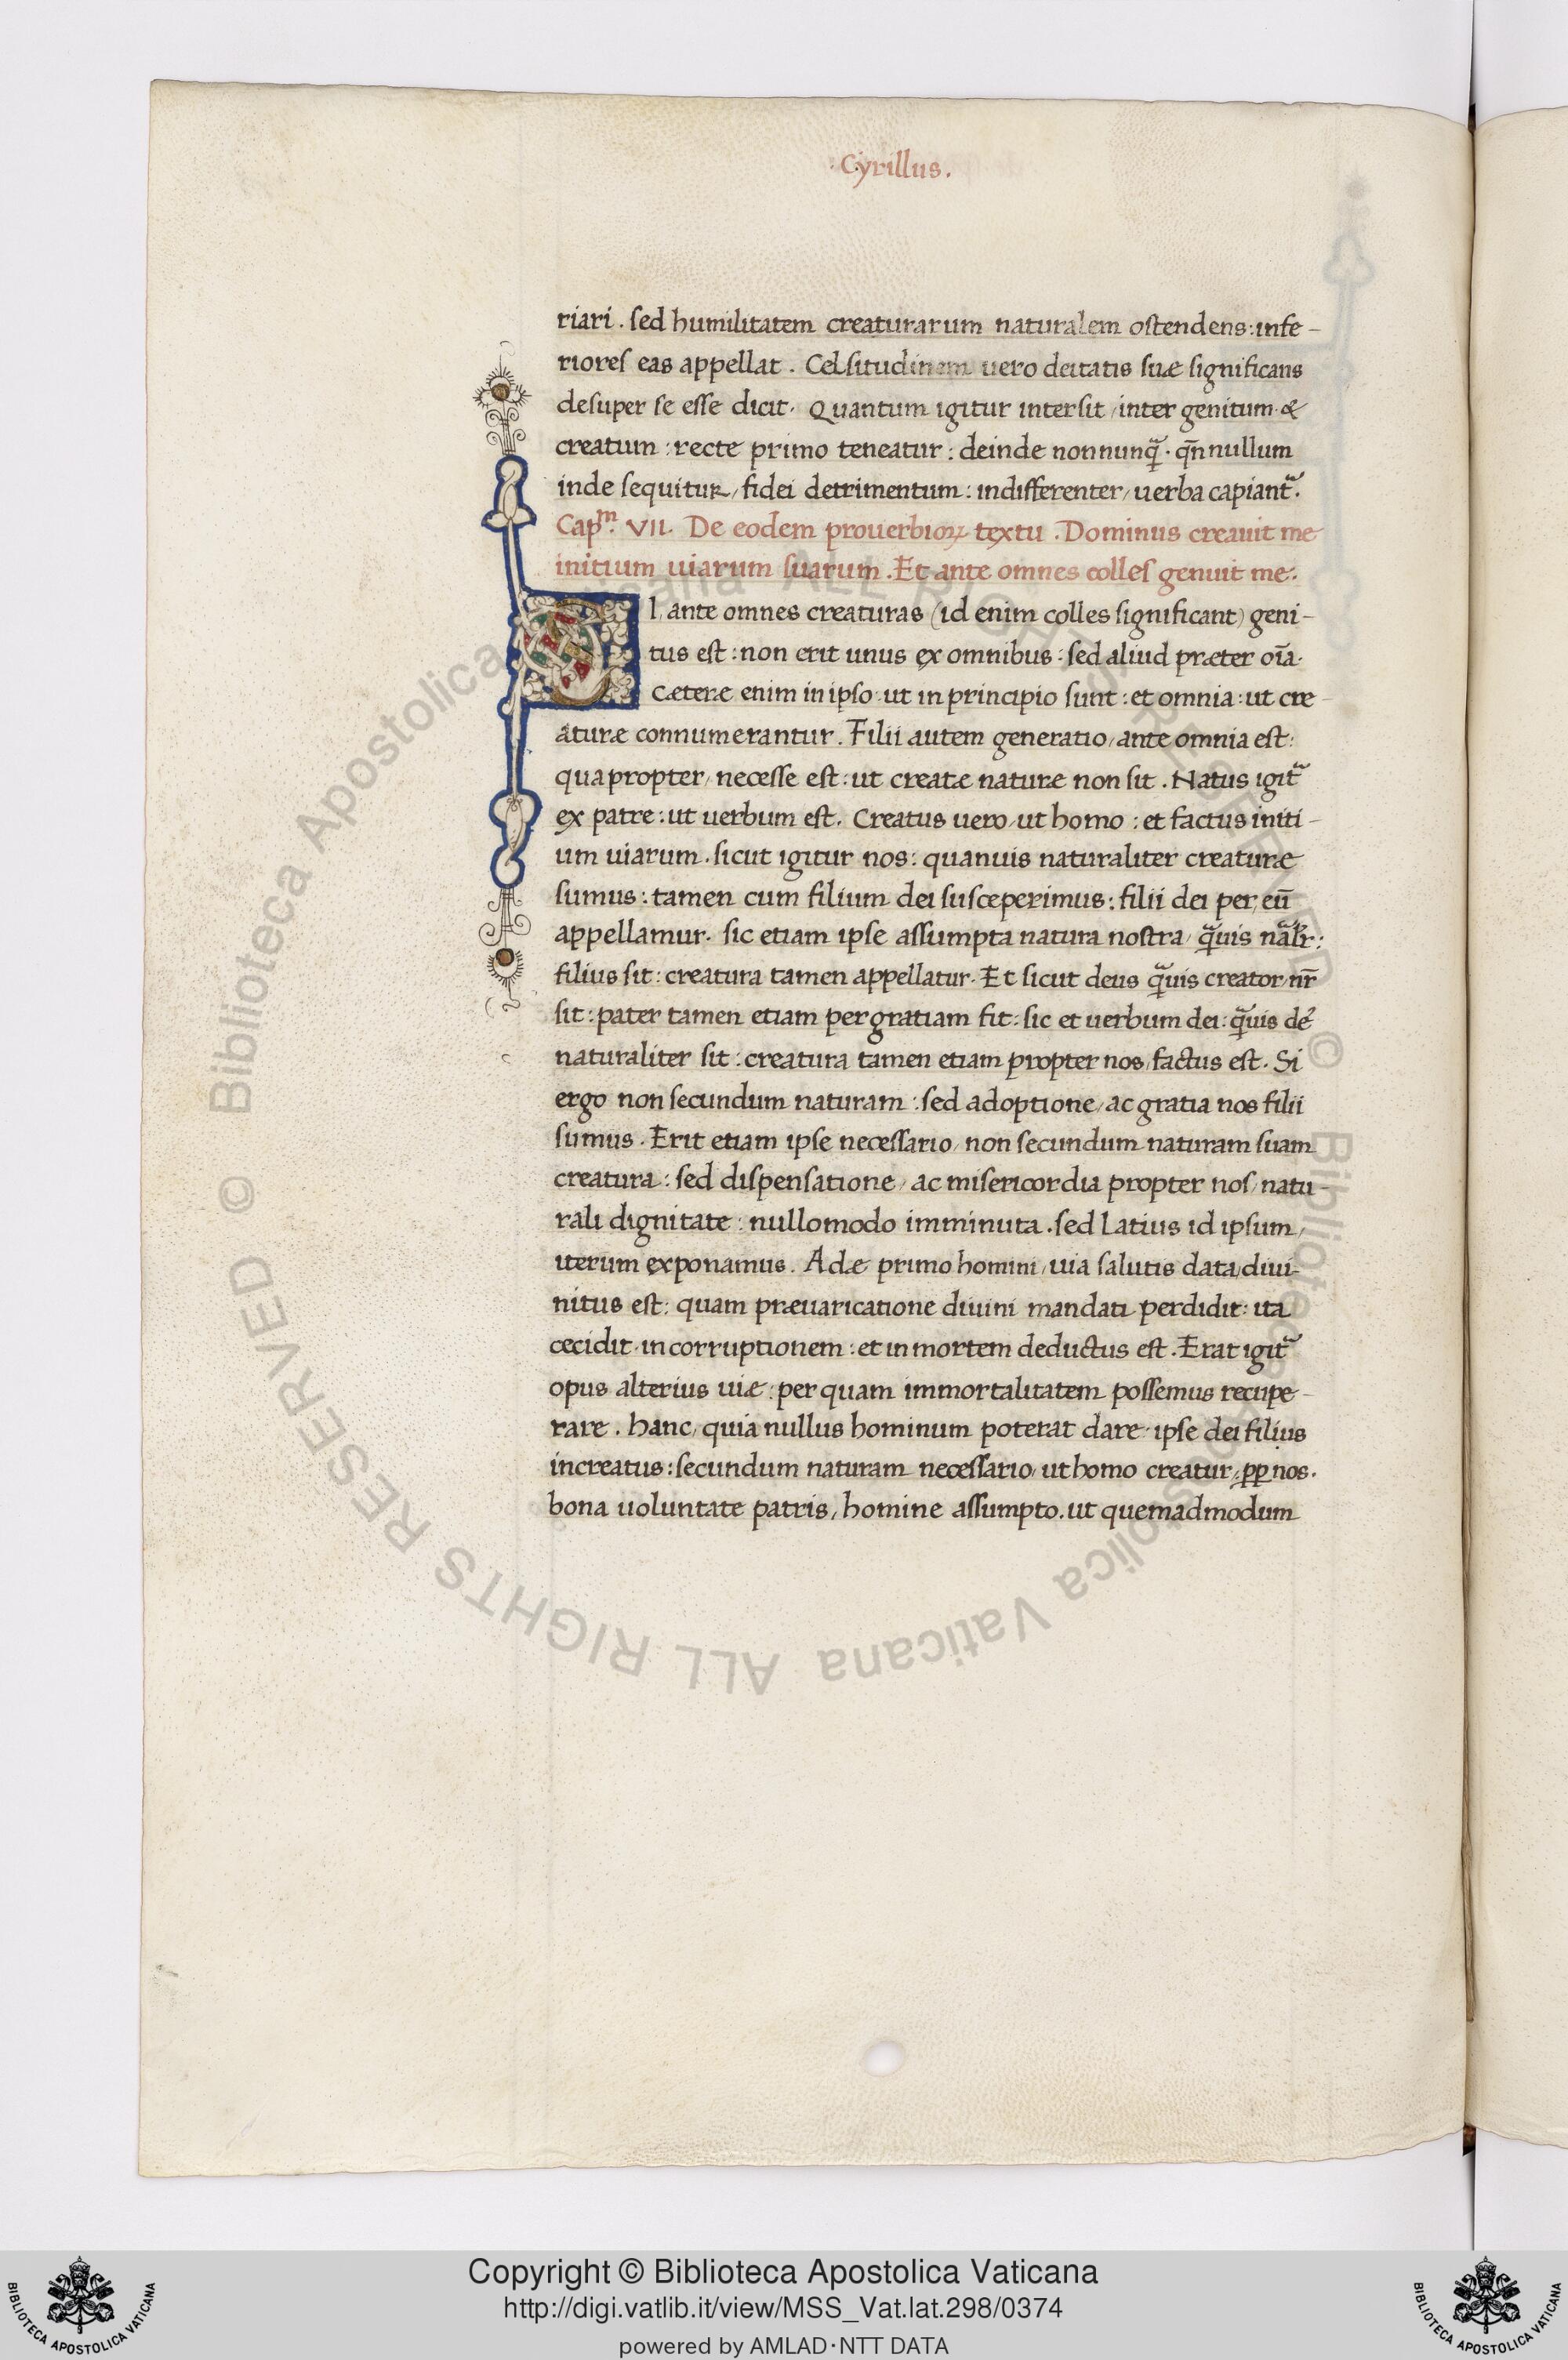 · Cyrillus .
riari . sed humilitatem creaturarum naturalem ostendens : infe-
riores eas appellat . Celsitudinem uero deitatis suæ significans
desuper se esse dicit . Quantum igitur intersit / inter genitum &
creatum : recte primo teneatur : deinde nonnunq̃ . qn̄ nullum
inde sequitur / fidei detrimentum : indifferenter / uerba capiant᷑ .
Cap^m. VII. De eodem prouerbioꝝ textu . Dominus creauit me
initium uiarum suarum . Et ante omnes colles genuit me .
SI ante omnes creaturas (id enim colles significant) geni-
tus est : non erit unus ex omnibus : sed aliud præter oı̃a .
Cæteræ enim in ipso ut in principio sunt : et omnia : ut cre-
aturæ connumerantur . Filii autem generatio / ante omnia est :
quapropter / necesse est : ut creatæ naturæ non sit . Natus igit᷑
ex patre : ut uerbum est . Creatus uero / ut homo : et factus initi-
um uiarum . sicut igitur nos : quanuis naturaliter creaturæ
sumus : tamen cum filium dei susceperimus : filii dei per eū
appellamur . sic etiam ipse assumpta natura nostra / q̃uis nãlr̃ :
filius sit : creatura tamen appellatur . Et sicut deus q̃uis creator / nr̃
sit : pater tamen etiam per gratiam fit : sic et uerbum dei : q̃uis de᷒
naturaliter sit : creatura tamen etiam propter nos / factus est . Si
ergo non secundum naturam : sed adoptione / ac gratia nos filii
sumus . Erit etiam ipse necessario / non secundum naturam suam
creatura : sed dispensatione / ac misericordia propter nos / natu-
rali dignitate : nullomodo imminuta . sed latius id ipsum /
iterum exponamus . Adæ primo homini / uia salutis data / diui-
nitus est : quam præuaricatione diuini mandati perdidit : ita
cecidit in corruptionem : et in mortem deductus est . Erat igit᷑
opus alterius uiæ : per quam immortalitatem possemus recupe-
rare . hanc / quia nullus hominum poterat dare ipse dei filius
increatus : secundum naturam necessario / ut homo creatur / ꝓp nos .
bona uoluntate patris / homine assumpto . ut quemadmodum
© Biblioteca Apostolica Vaticana ALL RIGHTS RESERVED © Biblioteca Apostolica Vaticana ALL RIGHTS RESERVED
Copyright © Biblioteca Apostolica Vaticana
http://digi.vatlib.it/view/MSS_Vat.lat.298/0374
powered by AMLAD·NTT DATA
BIBLIOTECA APOSTOLICA VATICANA
BIBLIOTECA APOSTOLICA VATICANA